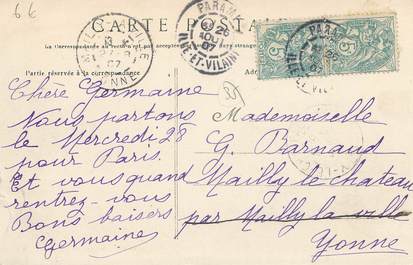 66
CARTE POSTALE
La Correspondance au recto
Partie réservée à la correspondance
PARAMÉ
26
AOUT
07
ILLE-ET-VILAINE
MAILLY-LA-VILLE
07
YONNE
5
5
Chère Germaine
Nous partons
le Mercredi 28
pour Paris.
Et vous quand
rentrez-vous
Bons baisers
Germaine
Mademoiselle
G. Barnaud
Mailly le chateau
par Mailly la ville
Yonne